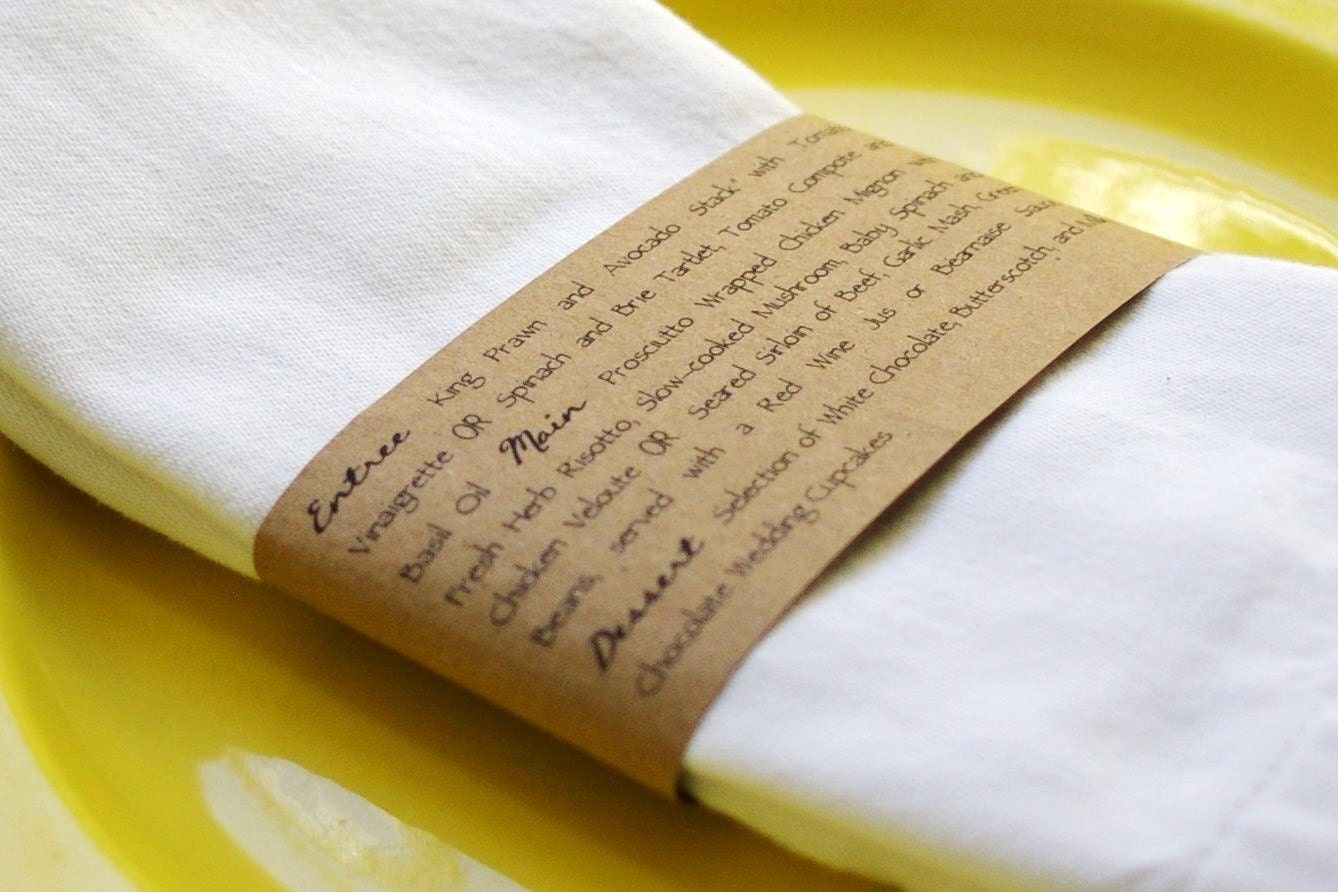 Entree King Prawn and Avocado Stack* with Tomato
Vinaigrette OR Spinach and Brie Tartlet, Tomato Compote and
Basil Oil Main Prosciutto Wrapped Chicken Mignon
Fresh Herb Risotto, Slow-cooked Mushroom, Baby Spinach and
Chicken Veloute OR Seared Sirloin of Beef, Garlic Mash, Green
Beans, served with a Red Wine Jus or Bearnaise
Dessert Selection of White Chocolate, Butterscotch, and
Chocolate Wedding Cupcakes